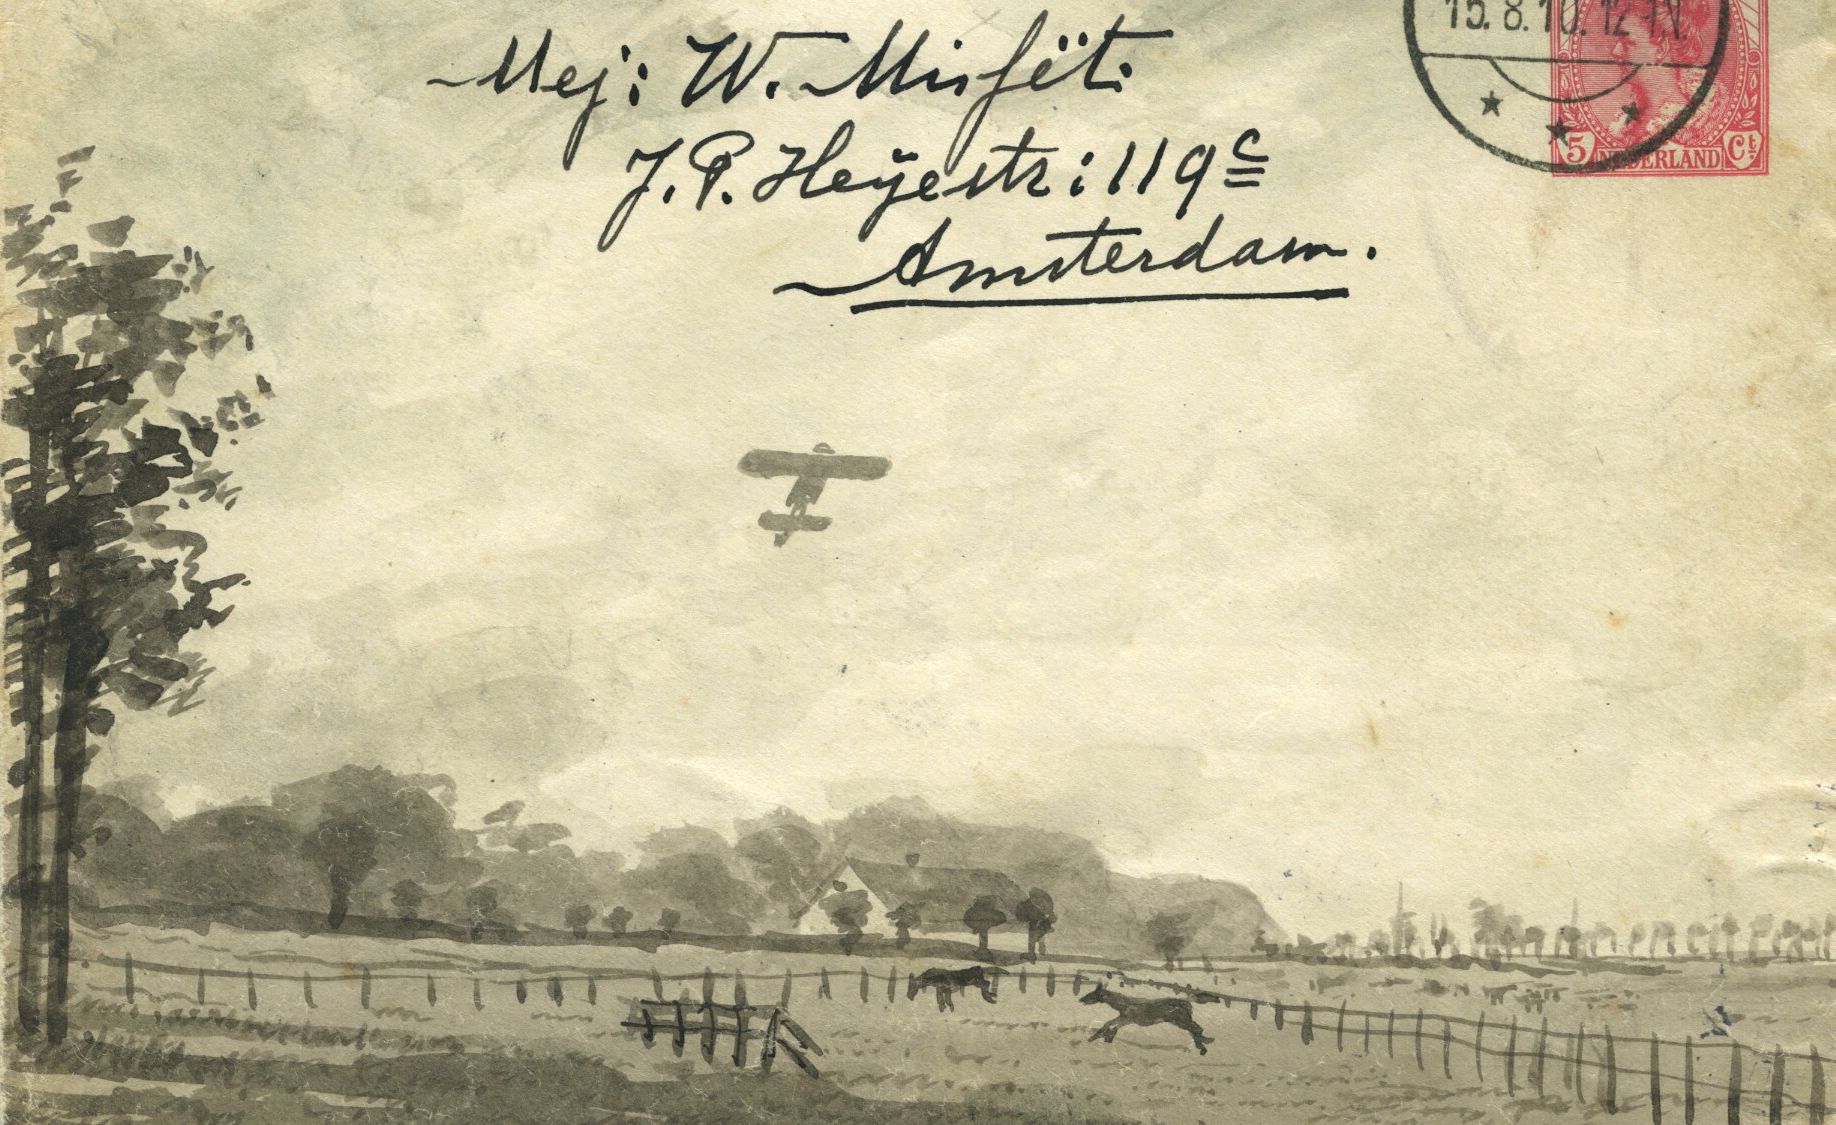 Mej: W. Misfët.
J. P. Heÿestr: 119c
Amsterdam.
15. 8. 10. 12
5 NEDERLAND Ct